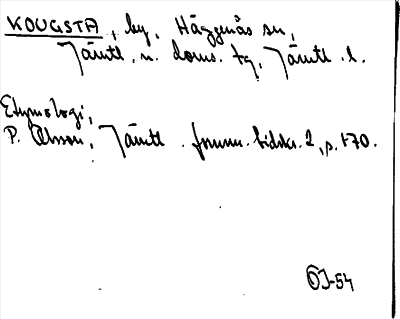 KOUGSTA, by, Häggenås sn,
Jämtl. n. doms. tg, Jämtl. l.
Etymologi,
P. Olsson, Jämtl. fornm. tidskr. 2, p. 170.
OJ-54